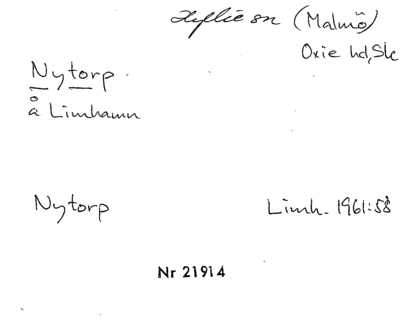 Hyllie sn (Malmö)
Oxie hd, Sk
Nytorp
å Limhamn
Nytorp Limh. 1961:58
Nr 21914